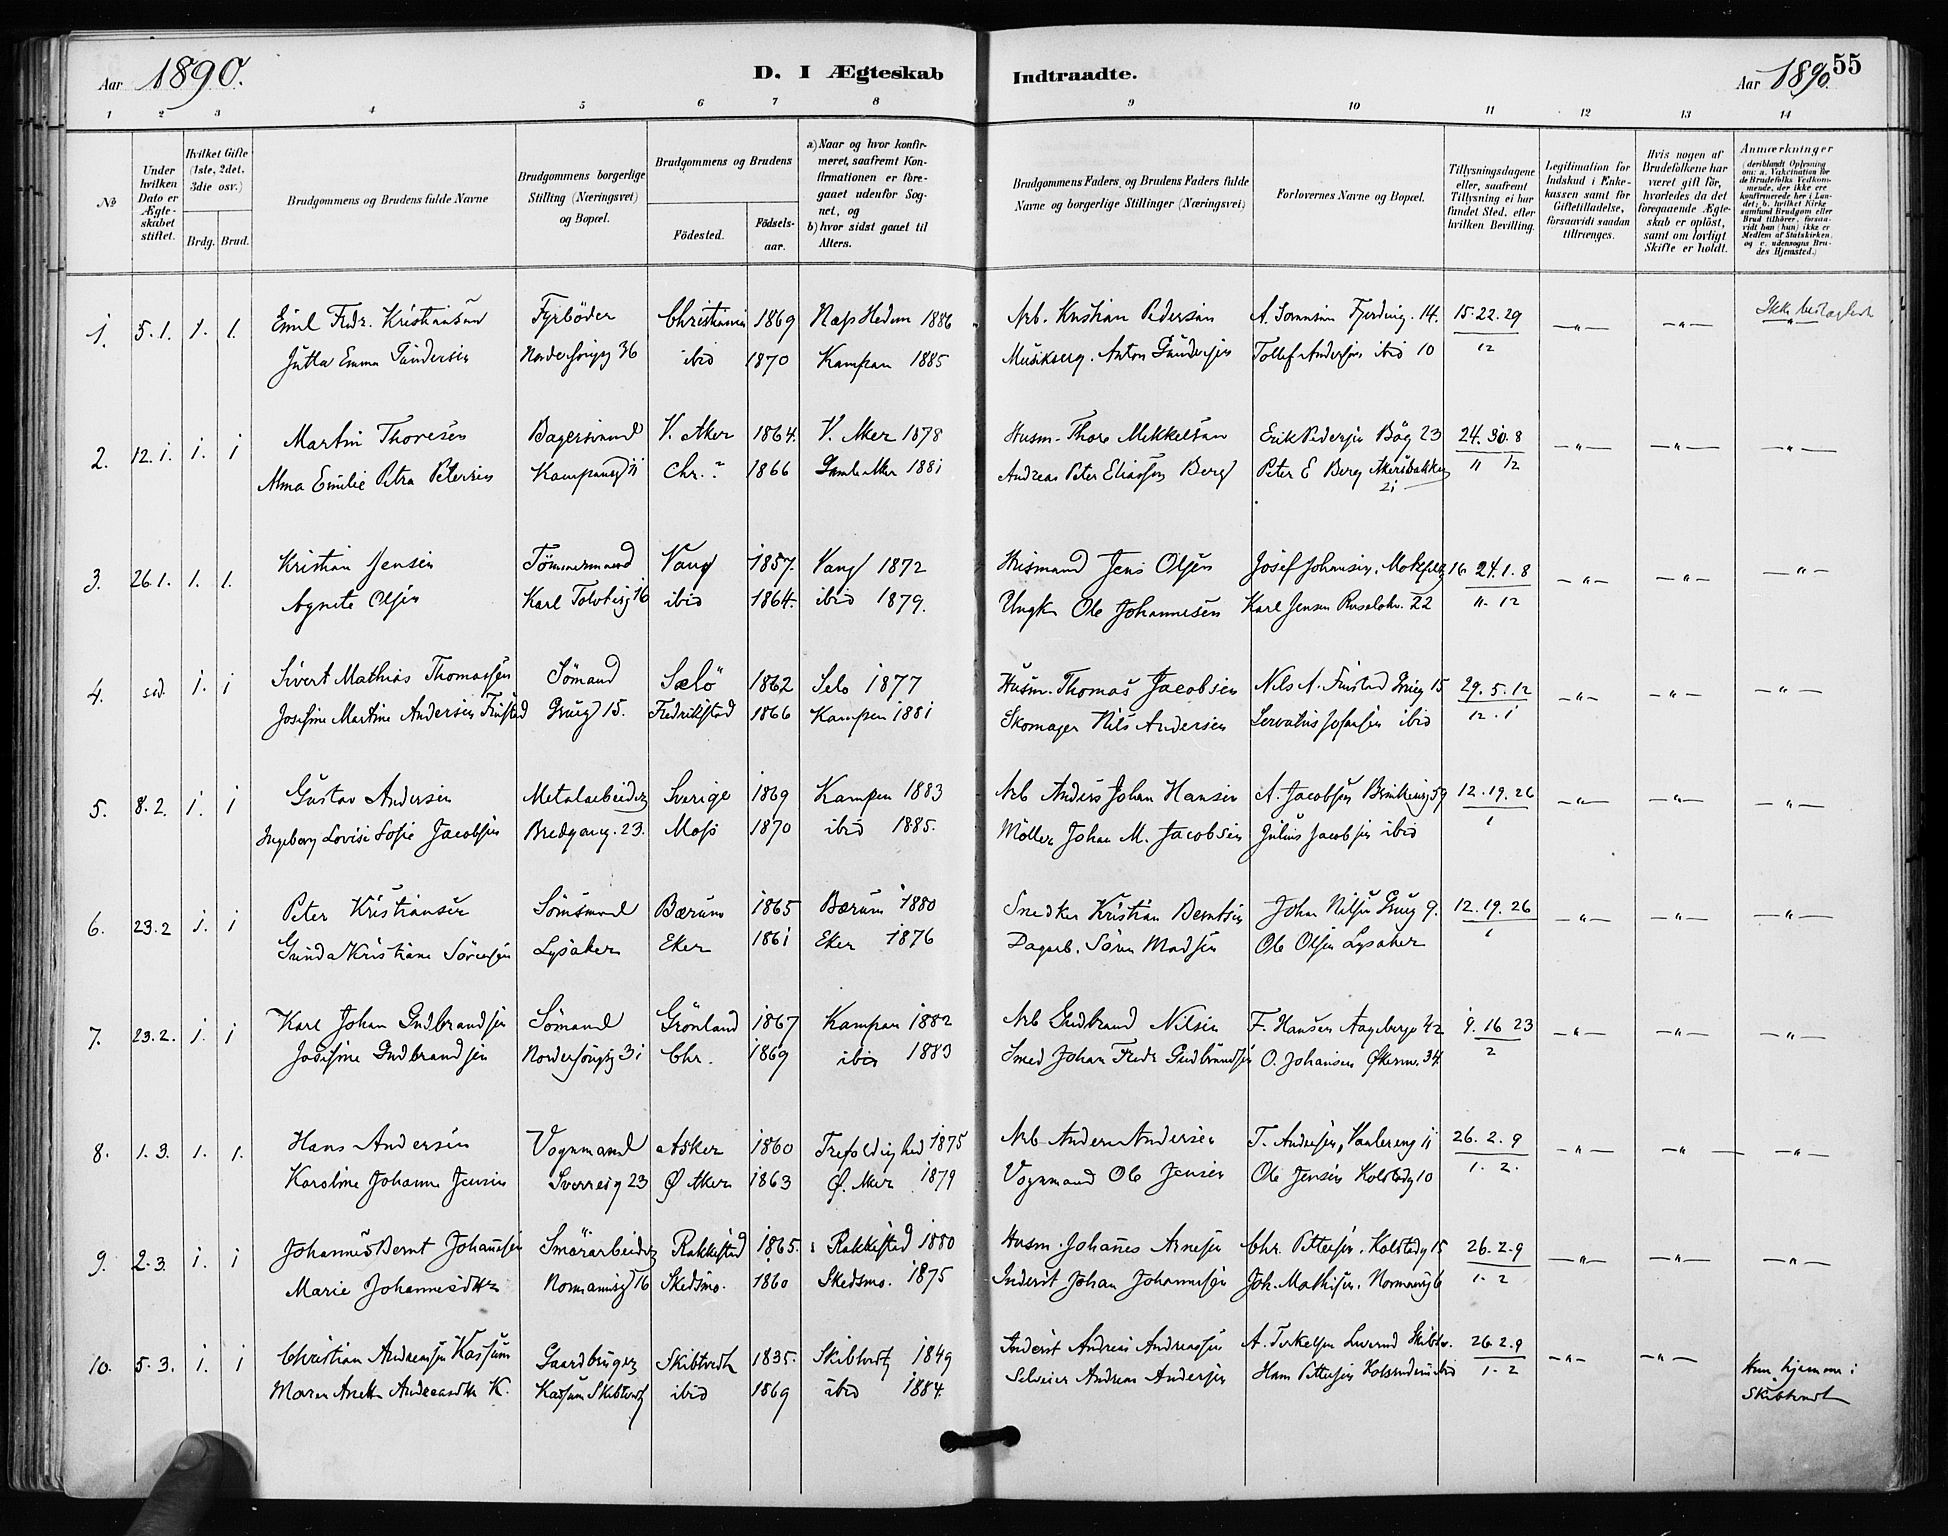 Aar 1890.
D. I Ægteskab
Indtraadte.
Aar 1890. 55
1 2 3 4 5 6 7 8 9 10 11 12 13 14
No
Under hvilken Dato er Ægteskabet stiftet.
Hvilket Gifte (1ste, 2det, 3die osv.)
Brdg. Brud.
Brudgommens og Brudens fulde Navne
Brudgommens borgerlige Stilling (Næringsvei) og Bopæl.
Brudgommens og Brudens
Födested.
Födselsaar.
a) Naar og hvor konfirmeret, saafremt Konfirmationen er foregaaet udenfor Sognet, og
b) hvor sidst gaaet til Alters.
Brudgommens Faders og Brudens Faders fulde Navne og borgerlige Stillinger (Næringsvei)
Forlovernes Navne og Bopæl.
Tillysningsdagene eller, saafremt Tillysning ei har fundet Sted, efter hvilken Bevilling.
Legitimation for Indskud i Enkekassen samt for Giftetilladelse, forsaavidt saadan tiltrænges.
Hvis nogen af Brudefolkene har været gift för, hvorledes da det foregaaende Ægteskab er oplöst, samt om lovligt Skifte er holdt.
Anmærkninger (deriblandt Oplysning om: a. Vakcination for de Brudefolks Vedkommende, der ikke ere konfirmerede her i Landet; b. hvilket Kirkesamfund Brudgom eller Brud tilhörer, forsaavidt han (hun) ikke er Medlem af Statskirken, og c. udensogns Brudes Hjemsted.)
1. 5.1. 1. 1. Emil Fredr. Kristiansen Fyrböder Christiania 1869 Næss Hedem 1886 Arb. Kristian Pedersen A. Fjerding. 14. 15.22.29 —„— —„— Ikke
Jutta Emma Gundersen 36 ibid 1870 Kampen 1885 Anton Gundersen Tollef Andersen ibid 10 12
2. 12.1. 1. 1 Martin Thoresen V. Aker 1864. V. Aker 1878 Husm. Thore Mikkelsen Erik Pedersen Bög 23 24.30.8 —„— —„— —„—
Alma Emilie Petra Petersen Kampengd 11 Chr.a 1866 Gamle Aker 1881 Andreas Peter Eliassen Berg Peter E Berg Akersbakken 21 11 12
3. 26.1. 1. 1. Kristian Jensen Tömmermand Vang 1857. Vang 1872 Husmand Jens Olsen Josef Johansen. 16. 24.1.8 —„— —„— —„—
Agnete Olsen Karl 16 ibid 1864. ibid 1879. Ungk Ole Johannesen Karl Jensen 22 11. 12
4. sd. 1. 1 Sivert Mathias Thomassen Sömand Selö 1862 Selö 1877 Husm. Thomas Jacobsen Nils A. Finstad 15 29.5.12 —„— —„— —„—
Josefine Martine Andersen Finstad 15. Fredrikstad 1866 Kampen 1881 Skomager Nils Andersen ibid 12.1
5. 8.2. 1. 1 Gustav Andersen Metalarbeider Sverige 1869 Kampen 1883 Arb Anders Johan Hansen A. Jacobsen 59 12.19.26 —„— —„— —„—
Ingeborg Lovise Sofie Jacobsen Bredgang. 23. Moss 1870 ibid 1885. Möller Johan M. Jacobsen Julius Jacobsen ibid 1
6. 23.2 1. 1 Peter Kristiansen Bærum 1865 Bærum 1880 Snedker Kristian Berntsen Johan Nilsen 9. 12.19.26 —„— —„— —„—
Gunda Kristiane Sörensen Lysaker Eker 1861 Eker 1876 Dagarb. Sören Madsen Ole Olsen Lysaker 1
7. 23.2. 1. 1 Karl Johan Gudbrandsen Sömand Grönland 1867 Kampen 1882 Arb Gudbrand Nilsen F. Hansen Aagebergv 42 9.16 23 —„— —„— —„—
Josefine Gudbrandsen 31 Chr. 1869 ibid 1883 Smed Johan Fredr Gudbrandsen O. Johansen Økernv. 34. 2
8. 1.3. 1. 1. Hans Andersen Vognmand Asker 1860 Trefoldighed 1875 Arb Anders Andersen T. Andresen, Vaalereng 11 26.2.9 —„— —„— —„—
Karoline Johanne Jensen Sverreg 23 Ø Aker 1863 Ø. Aker 1879 Vognmand Ole Jensen Ole Jensen Kolstadg 10 1. 2.
9. 2.3. 1. 1 Johannes Bernt Johansen Smörarbeider Rakkestad 1865. Rakkestad 1880 Husm. Johanes Arnesen Chr. Pettersen. Kolstadg 15 26.2.9 —„— —„— —„—
Marie Johannesdtr Normannsg 16 Skedsmo. 1860 Skedsmo. 1875 Inderst Johan Johannesen Joh. Mathisen. Normannsg 6 1. 2
10. 5.3. 1. 1 Christian Andreassen Kassum Gaardbruger Skibtvedt 1835. Skibtvedt 1849 Inderst Andreas Andreassen A. Torkelsen Skibtv. 26.2.9 —„— —„— Hun hjemme i
Maren Anette Andreasdtr K. Kassum Skibtvedt ibid 1869 ibid 1884. Selveier Andreas Andersen Hans Pettersen ibid 1. 2 Skibtvedt